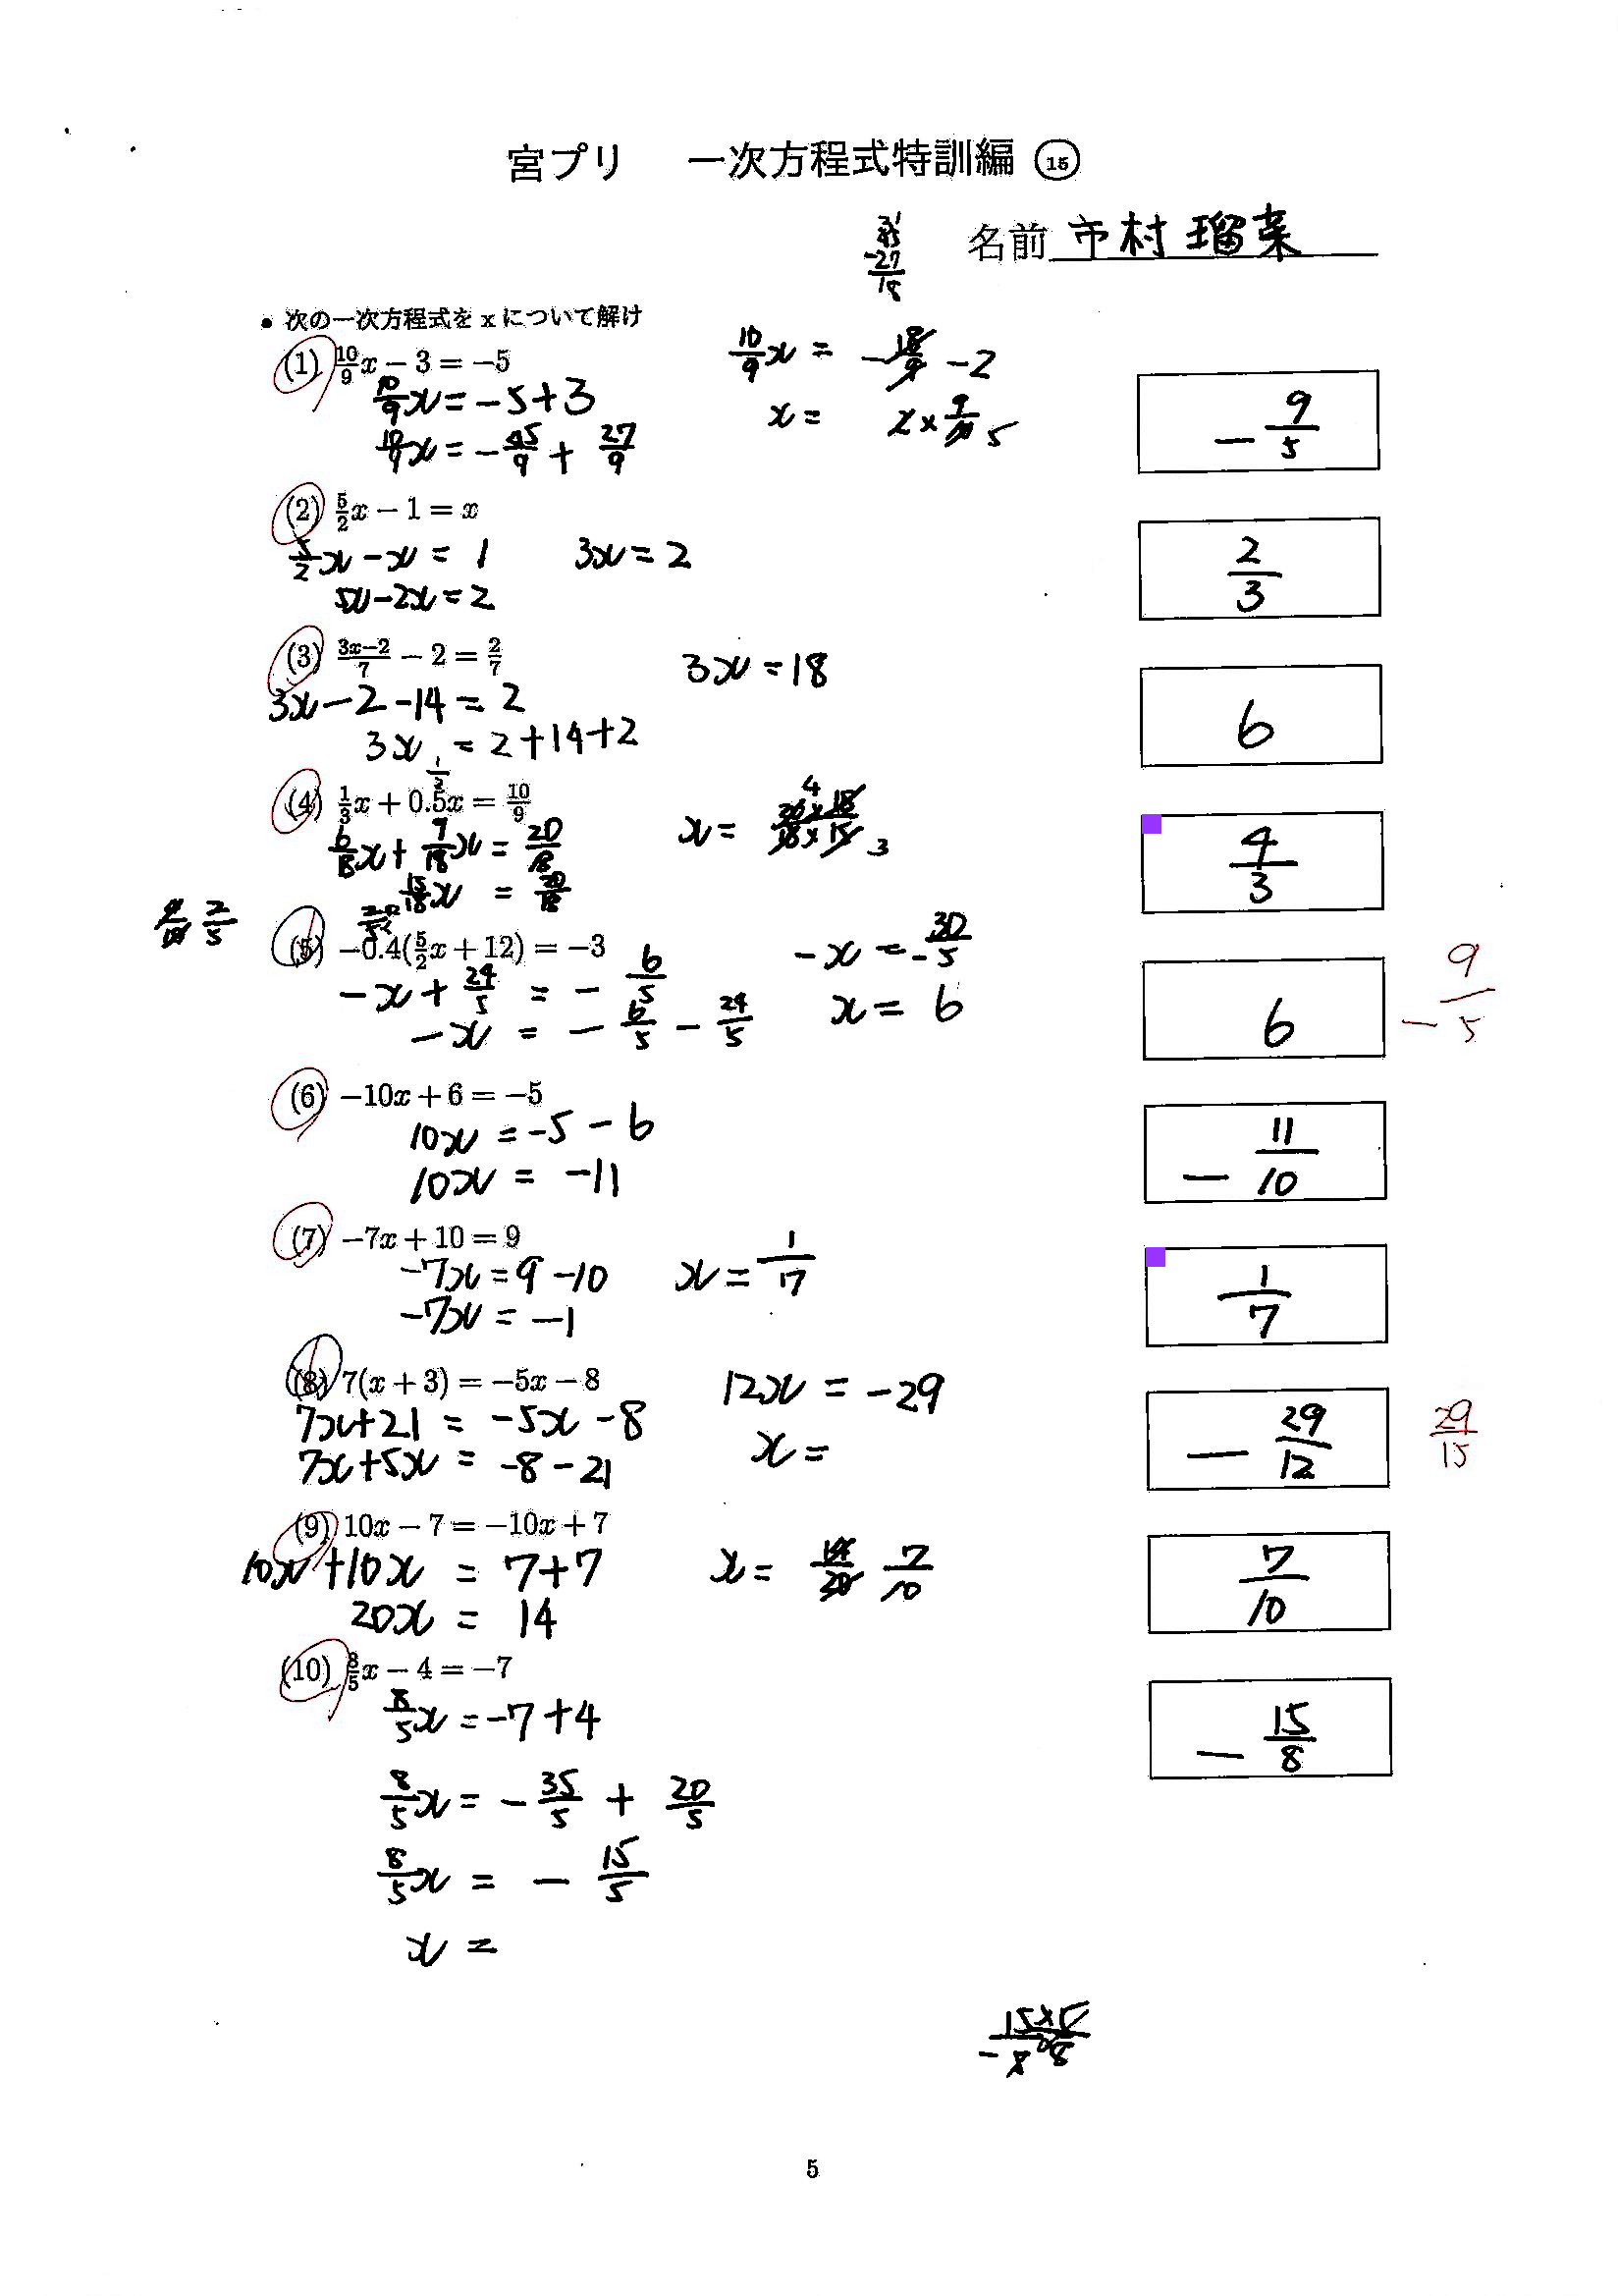 宮プリ 一次方程式特訓編 ⑮
名前 市村 瑠菜
45
-27
18
● 次の一次方程式を x について解け
(1) 10/9 x − 3 = −5
10/9 x = −5+3
10/9 x = −45/9 + 27/9
10/9 x = −18/9 −2
x = 2×9/10 5
−9/5
(2) 5/2 x − 1 = x
5/2 x − x = 1
5x−2x=2
3x=2
2/3
(3) (3x−2)/7 − 2 = 2/7
3x−2−14=2
3x = 2+14+2
3x=18
6
(4) 1/3 x + 0.5x = 10/9
1/2
6/18 x + 9/18 x = 20/18
15/18 x = 20/18
x = (20×18)/(18×15) 4 3
4/3
4/10 2/5
(5) −0.4(5/2 x + 12) = −3
−x + 24/5 = −6/5
−x = −6/5 − 24/5
−x = −30/5
x = 6
6
−9/5
(6) −10x + 6 = −5
10x = −5−6
10x = −11
−11/10
(7) −7x + 10 = 9
−7x = 9−10
−7x = −1
x = 1/17
1/7
(8) 7(x + 3) = −5x − 8
7x+21 = −5x −8
7x+5x = −8−21
12x = −29
x =
−29/12
29/15
(9) 10x − 7 = −10x + 7
10x+10x = 7+7
20x = 14
x = 14/20 7/10
7/10
(10) 8/5 x − 4 = −7
8/5 x = −7+4
8/5 x = −35/5 + 20/5
8/5 x = −15/5
x =
−15/8
5